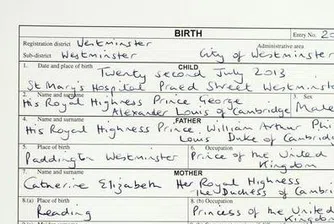 BIRTH
Entry No.
Registration district Westminster
Administrative area
Sub-district Westminster City of Westminster
1. Date and place of birth CHILD
Twenty second July 2013
St Mary's Hospital Praed Street Westminster
2. Name and surname 3. Sex
His Royal Highness Prince George
Alexander Louis of Cambridge Male
4. Name and surname FATHER
His Royal Highness Prince William Arthur
Louis Duke of
5. Place of birth 6. Occupation
Paddington Westminster Prince of the United
Kingdom
7. Name and surname MOTHER
Catherine Elizabeth Her Royal Highness
The Duchess of
8.(a) Place of birth 8.(b) Occupation
Reading Princess of the United
Kingdom